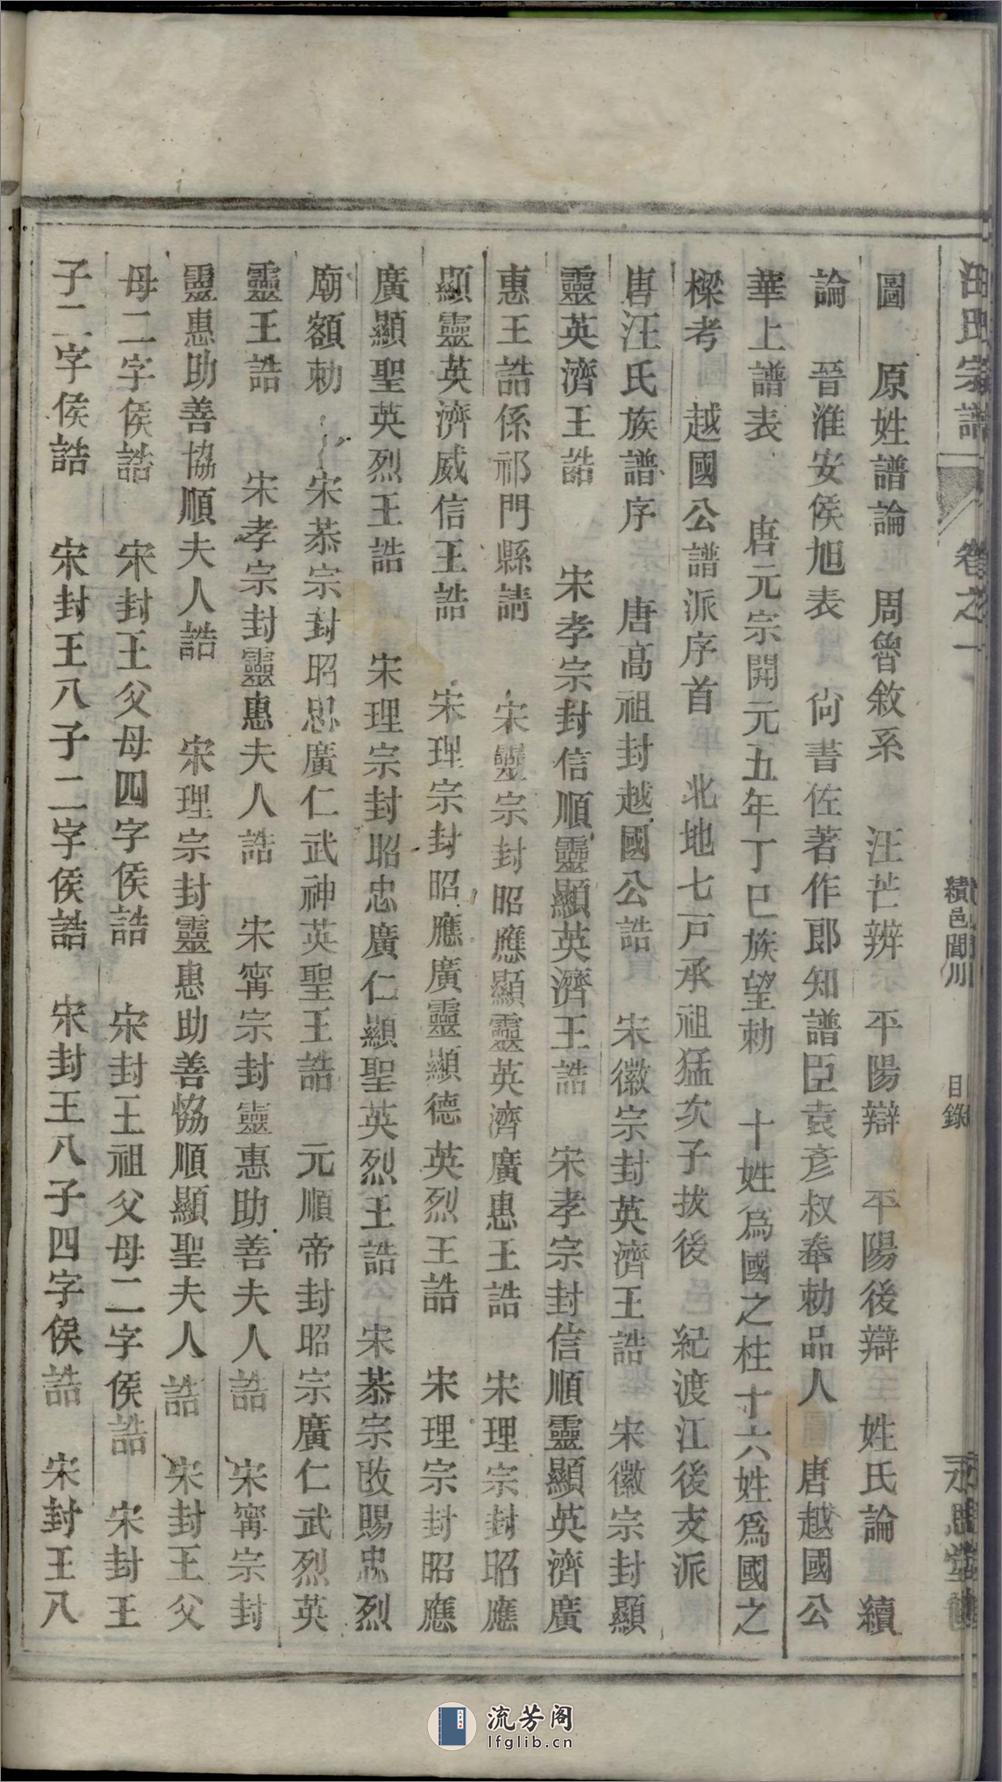 汪氏宗譜 卷之一 績邑聞川 目錄
圖 原姓譜論 周魯敘系 汪芒辨 平陽辯 平陽後辯 姓氏論 續
論 晉淮安侯旭表 尙書佐著作郎知譜臣袁彥叔奉勅品人 唐越國公
華上譜表 唐元宗開元五年丁巳族望勅 十姓爲國之柱十六姓爲國之
樑考 越國公譜派序首 北地七戸承祖猛次子拔後 紀渡江後支派
唐汪氏族譜序 唐高祖封越國公誥 宋徽宗封英濟王誥 宋徽宗封顯
靈英濟王誥 宋孝宗封信順靈顯英濟王誥 宋孝宗封信順靈顯英濟廣
惠王誥係祁門縣請 宋靈宗封昭應顯靈英濟廣惠王誥 宋理宗封昭應
顯靈英濟威信王誥 宋理宗封昭應廣靈顯德英烈王誥 宋理宗封昭應
廣顯聖英烈王誥 宋理宗封昭忠廣仁顯聖英烈王誥 宋恭宗改賜忠烈
廟額勅 宋恭宗封昭忠廣仁武神英聖王誥 元順帝封昭宗廣仁武烈英
靈王誥 宋孝宗封靈惠夫人誥 宋甯宗封靈惠助善夫人誥 宋甯宗封
靈惠助善協順夫人誥 宋理宗封靈惠助善協順顯聖夫人誥 宋封王父
母二字侯誥 宋封王父母四字侯誥 宋封王祖父母二字侯誥 宋封王
子二字侯誥 宋封王八子二字侯誥 宋封王八子四字侯誥 宋封王八
流芳阁
lfglib.cn